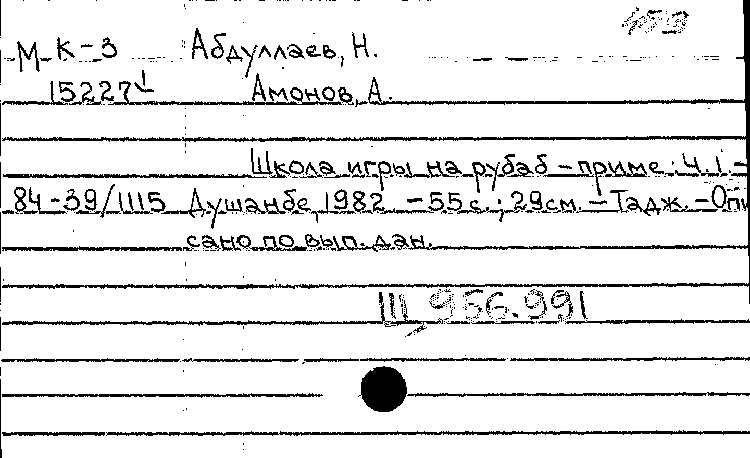 453
М К-3 Абдуллаев, Н.
15227 1 Амонов, А.
Школа игры на рубаб-приме: Ч.1.-
84-39/1115 Душанбе, 1982. -55с.; 29см. -Тадж. -Опи
сано по вып. дан.
III 956.991